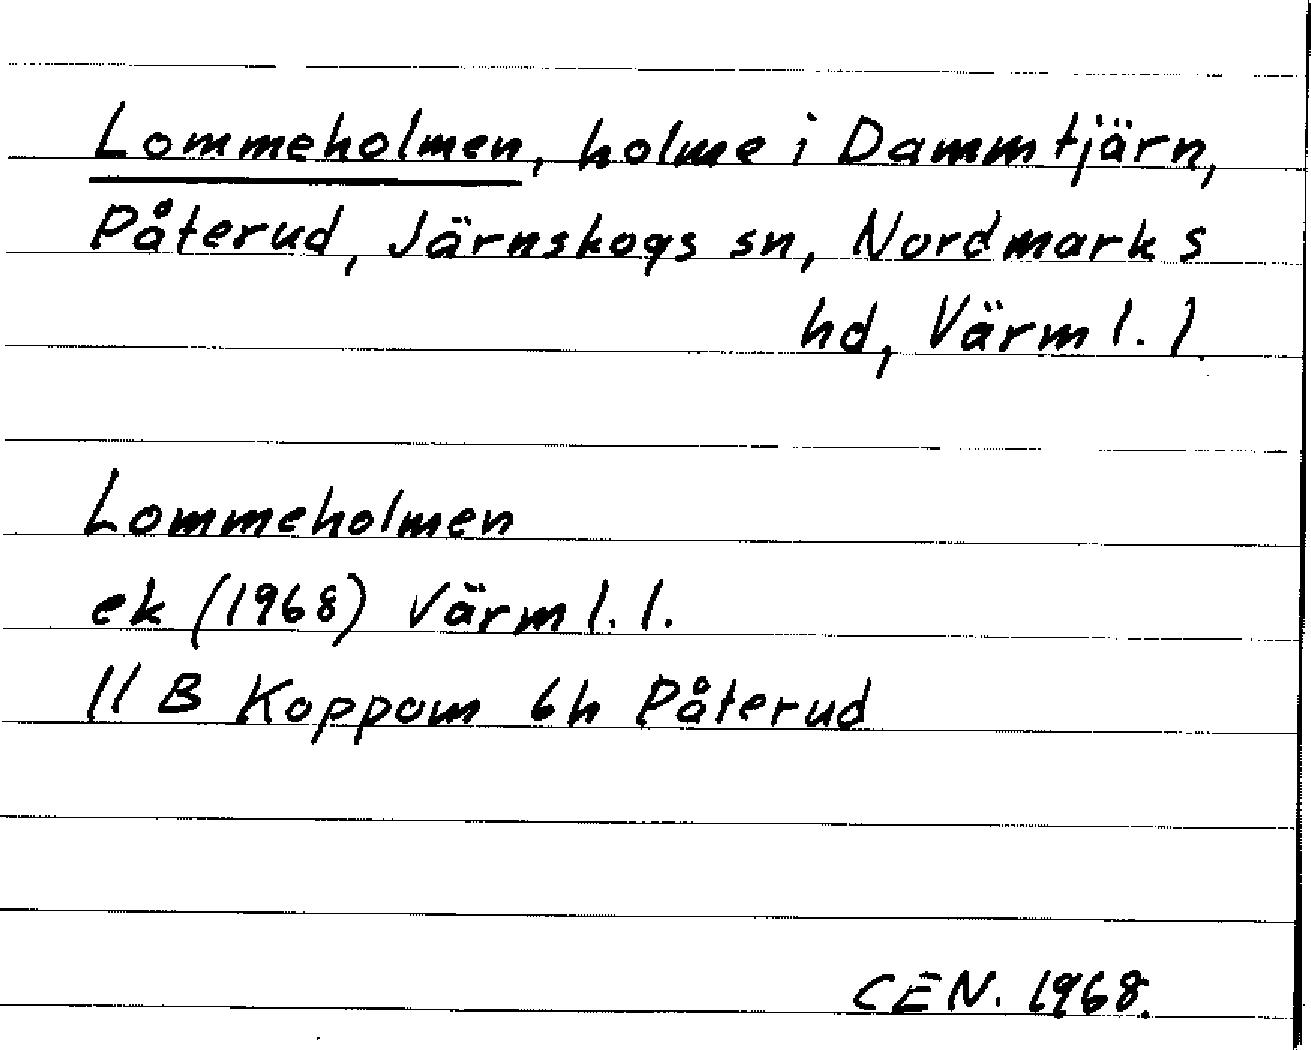 Lommeholmen, holme i Dammtjärn,
Påterud, Järnskogs sn, Nordmarks
hd, Värml. l.
Lommeholmen
ek (1968) Värml. l.
11 B Koppom 6h Påterud
CEN. 1968.